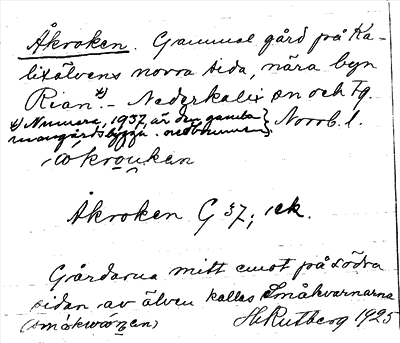 Åkroken. Gammal gård på Ka-
lixälvens norra sida, nära byn
Rian.x) – Nederkalix sn och Tg.
x) Numera, 1937, är den gamla
mangårdsbyggn. nedbrunnen}. Norrb. l.
åkroukan
Åkroken G 37; ick.
Gårdarna mitt emot på södra
sidan av älven kallas Småkvarnarna
(småkwaɳen) H. Rutberg 1925